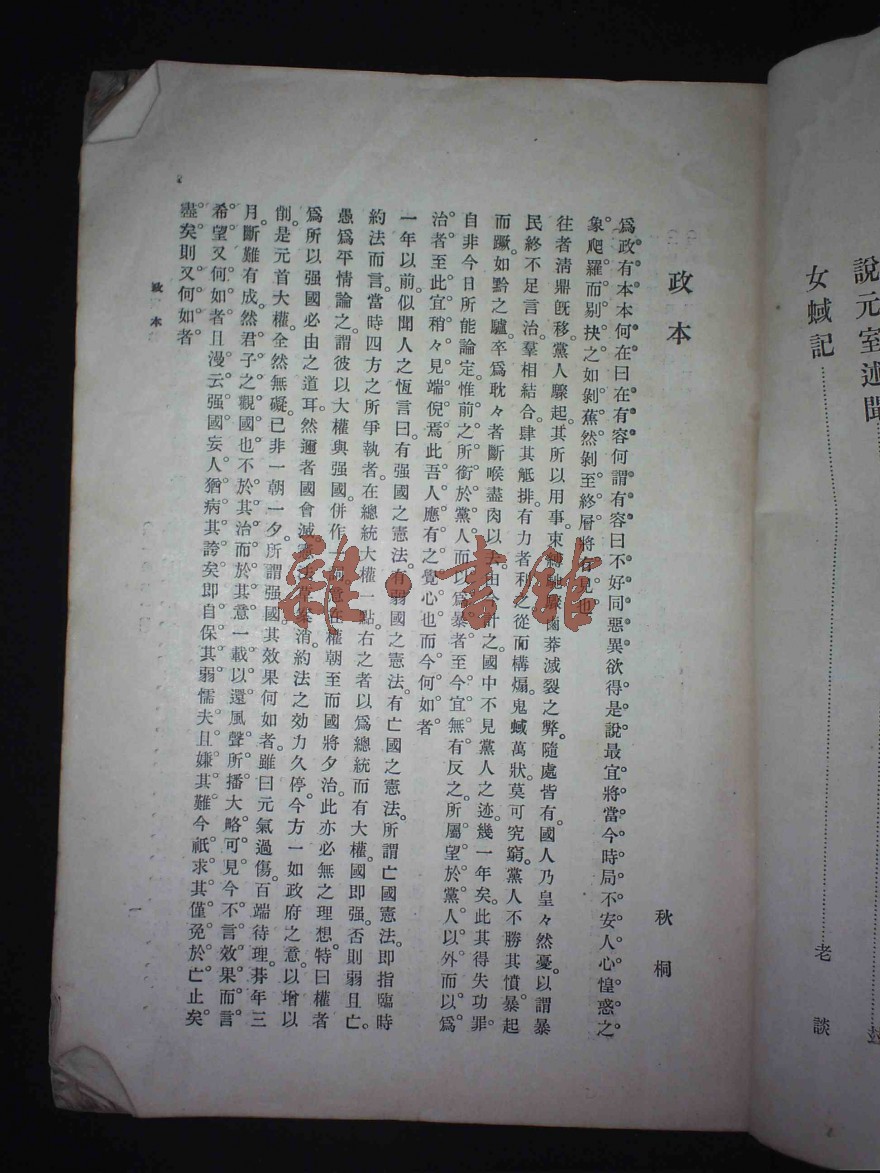 說元室述聞
女蜮記……老談
政本
秋桐
爲政有本本何在曰在有容何謂有容曰不好同惡異欲得是說最宜將當今時局不安人心惶惑之
象爬羅而剔抉之如剝蕉然剝至終層將有見也
往者淸鼎旣移。黨人驟起。其所以用事。束縛馳驟鹵莽滅裂之弊。隨處皆有。國人乃皇々然憂。以謂暴
民終不足言治。羣相結合。肆其觝排。有力者利之。從而構煽。鬼蜮萬狀。莫可究窮。黨人不勝其憤。暴起
而蹶。如黔之驢。卒爲耽々者斷喉盡肉以去。由今計之。國中不見黨人之迹。幾一年矣。此其得失功罪。
自非今日所能論定。惟前之所銜於黨人而以爲暴者。至今宜無有反之。所屬望於黨人以外而以爲
治者。至此宜稍々見端倪。焉此吾人應有之覺心也。而今何如者。
一年以前。似聞人之恆言曰。有强國之憲法。有弱國之憲法。有亡國之憲法。所謂亡國憲法。即指臨時
約法而言。當時四方之所爭執者。在總統大權一點。右之者以爲總統而有大權。國即强。否則弱且亡。
愚爲平情論之。謂彼以大權與强國。併作一詞。意在權朝至而國將夕治。此亦必無之理想。特曰權者
爲所以强國必由之道耳。然邇者國會滅。憲法草案消。約法之効力久停。今方一如政府之意。以增以
削。是元首大權。全然無礙。已非一朝一夕。所謂强國。其效果何如者。雖曰元氣過傷。百端待理。朞年三
月。斷難有成。然君子之觀國也。不於其治而於其意。一載以還。風聲所播。大略可見。今不言效果而言
希望。又何如者。且漫云强國。妄人猶病其誇矣。即自保其弱。懦夫且嫌其難。今祇求其僅免於亡止矣。
盡矣。則又何如者。
政本
一
雜·書館